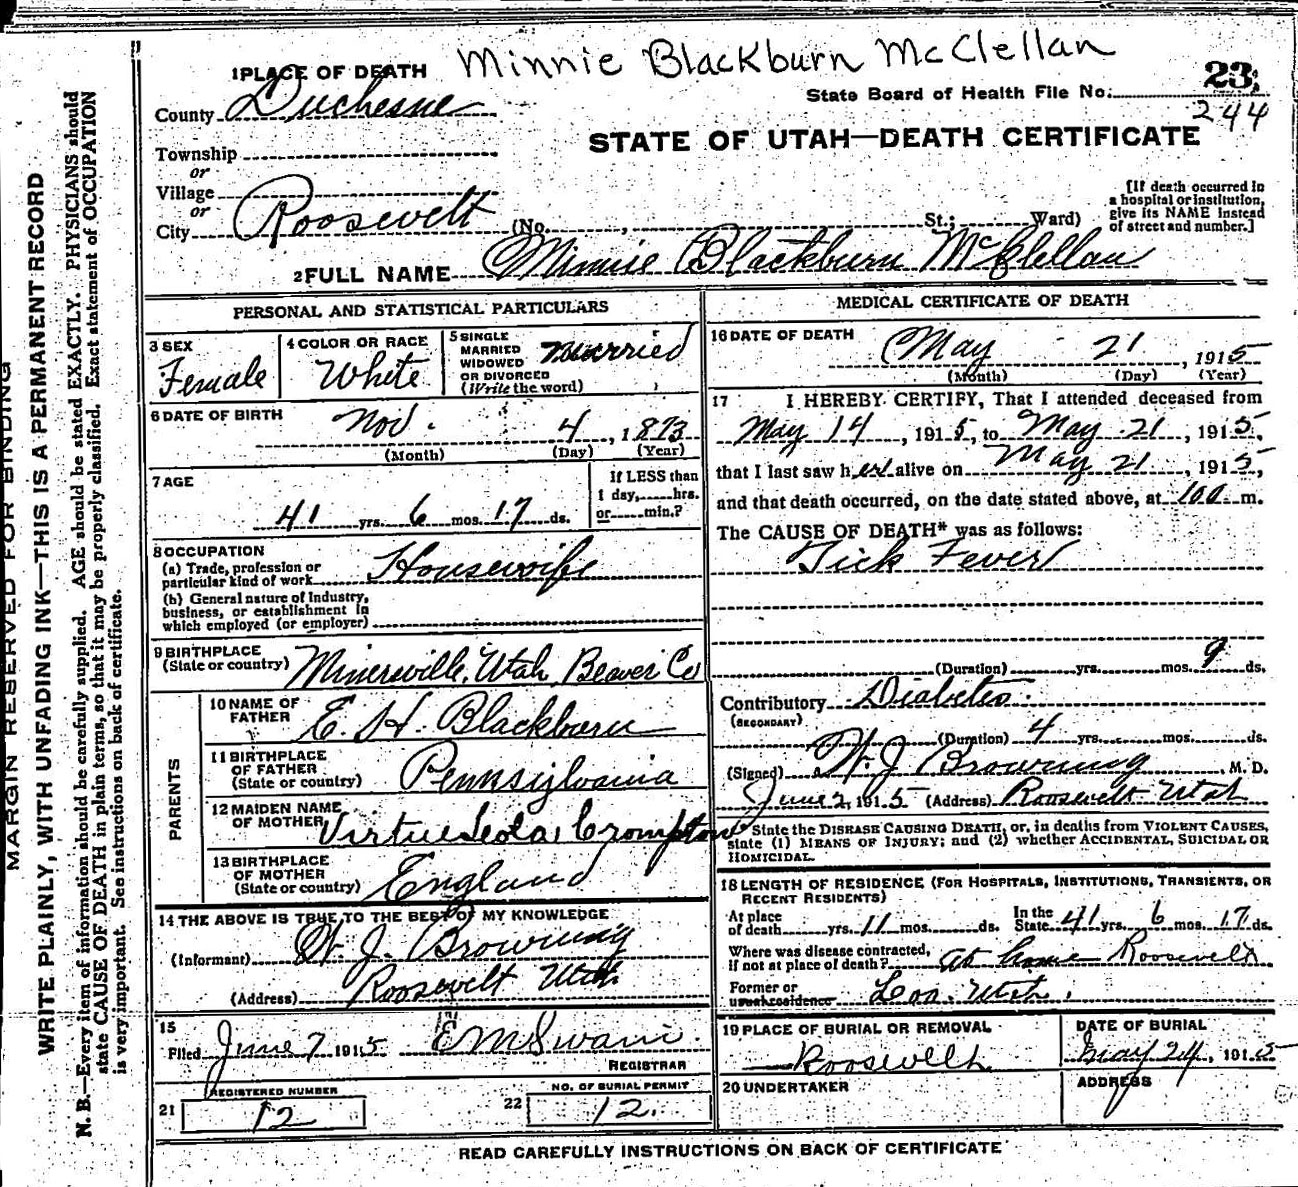 Minnie Blackburn McClellan
1 PLACE OF DEATH
23
State Board of Health File No.
244
County Duchesne
STATE OF UTAH—DEATH CERTIFICATE
Township
or
Village
or
City Roosevelt (No. , St.; Ward)
[If death occurred in
a hospital or institution,
give its NAME instead
of street and number.]
2 FULL NAME Minnie Blackburn McClellan
PERSONAL AND STATISTICAL PARTICULARS
3 SEX
Female
4 COLOR OR RACE
White
5 SINGLE
MARRIED
WIDOWED
OR DIVORCED
(Write the word)
Married
6 DATE OF BIRTH
Nov. 4, 1873
(Month) (Day) (Year)
7 AGE
41 yrs. 6 mos. 17 ds.
If LESS than
1 day, hrs.
or min.?
8 OCCUPATION
(a) Trade, profession or
particular kind of work Housewife
(b) General nature of Industry,
business, or establishment in
which employed (or employer)
9 BIRTHPLACE
(State or country) Minersville, Utah, Beaver Co
PARENTS
10 NAME OF
FATHER E. H. Blackburn
11 BIRTHPLACE
OF FATHER
(State or country) Pennsylvania
12 MAIDEN NAME
OF MOTHER Virtue Leota Crompton
13 BIRTHPLACE
OF MOTHER
(State or country) England
14 THE ABOVE IS TRUE TO THE BEST OF MY KNOWLEDGE
(Informant) W. J. Browning
(Address) Roosevelt Utah
15
Filed June 7 1915 E M Swain
REGISTRAR
REGISTERED NUMBER
21 12
NO. OF BURIAL PERMIT
22 12.
MEDICAL CERTIFICATE OF DEATH
16 DATE OF DEATH
May 21, 1915
(Month) (Day) (Year)
17 I HEREBY CERTIFY, That I attended deceased from
May 14, 1915, to May 21, 1915,
that I last saw her alive on May 21, 1915,
and that death occurred, on the date stated above, at 100 m.
The CAUSE OF DEATH* was as follows:
Tick Fever
(Duration) yrs. mos. 9 ds.
Contributory Diabetes.
(SECONDARY)
(Duration) 4 yrs. mos. ds.
(Signed) W. J. Browning M. D.
June 2, 1915 (Address) Roosevelt Utah
* State the DISEASE CAUSING DEATH, or, in deaths from VIOLENT CAUSES,
state (1) MEANS OF INJURY; and (2) whether ACCIDENTAL, SUICIDAL OR
HOMICIDAL.
18 LENGTH OF RESIDENCE (FOR HOSPITALS, INSTITUTIONS, TRANSIENTS, OR
RECENT RESIDENTS)
At place
of death yrs. 11 mos. ds.
In the
State 41 yrs. 6 mos. 17 ds.
Where was disease contracted,
if not at place of death? at home Roosevelt
Former or
usual residence Loa. Utah.
19 PLACE OF BURIAL OR REMOVAL
Roosevelt
DATE OF BURIAL
May 24, 1915
20 UNDERTAKER
ADDRESS
READ CAREFULLY INSTRUCTIONS ON BACK OF CERTIFICATE
MARGIN RESERVED FOR BINDING
WRITE PLAINLY, WITH UNFADING INK—THIS IS A PERMANENT RECORD
N. B.—Every item of information should be carefully supplied. AGE should be stated EXACTLY. PHYSICIANS should
state CAUSE OF DEATH in plain terms, so that it may be properly classified. Exact statement of OCCUPATION
is very important. See instructions on back of certificate.